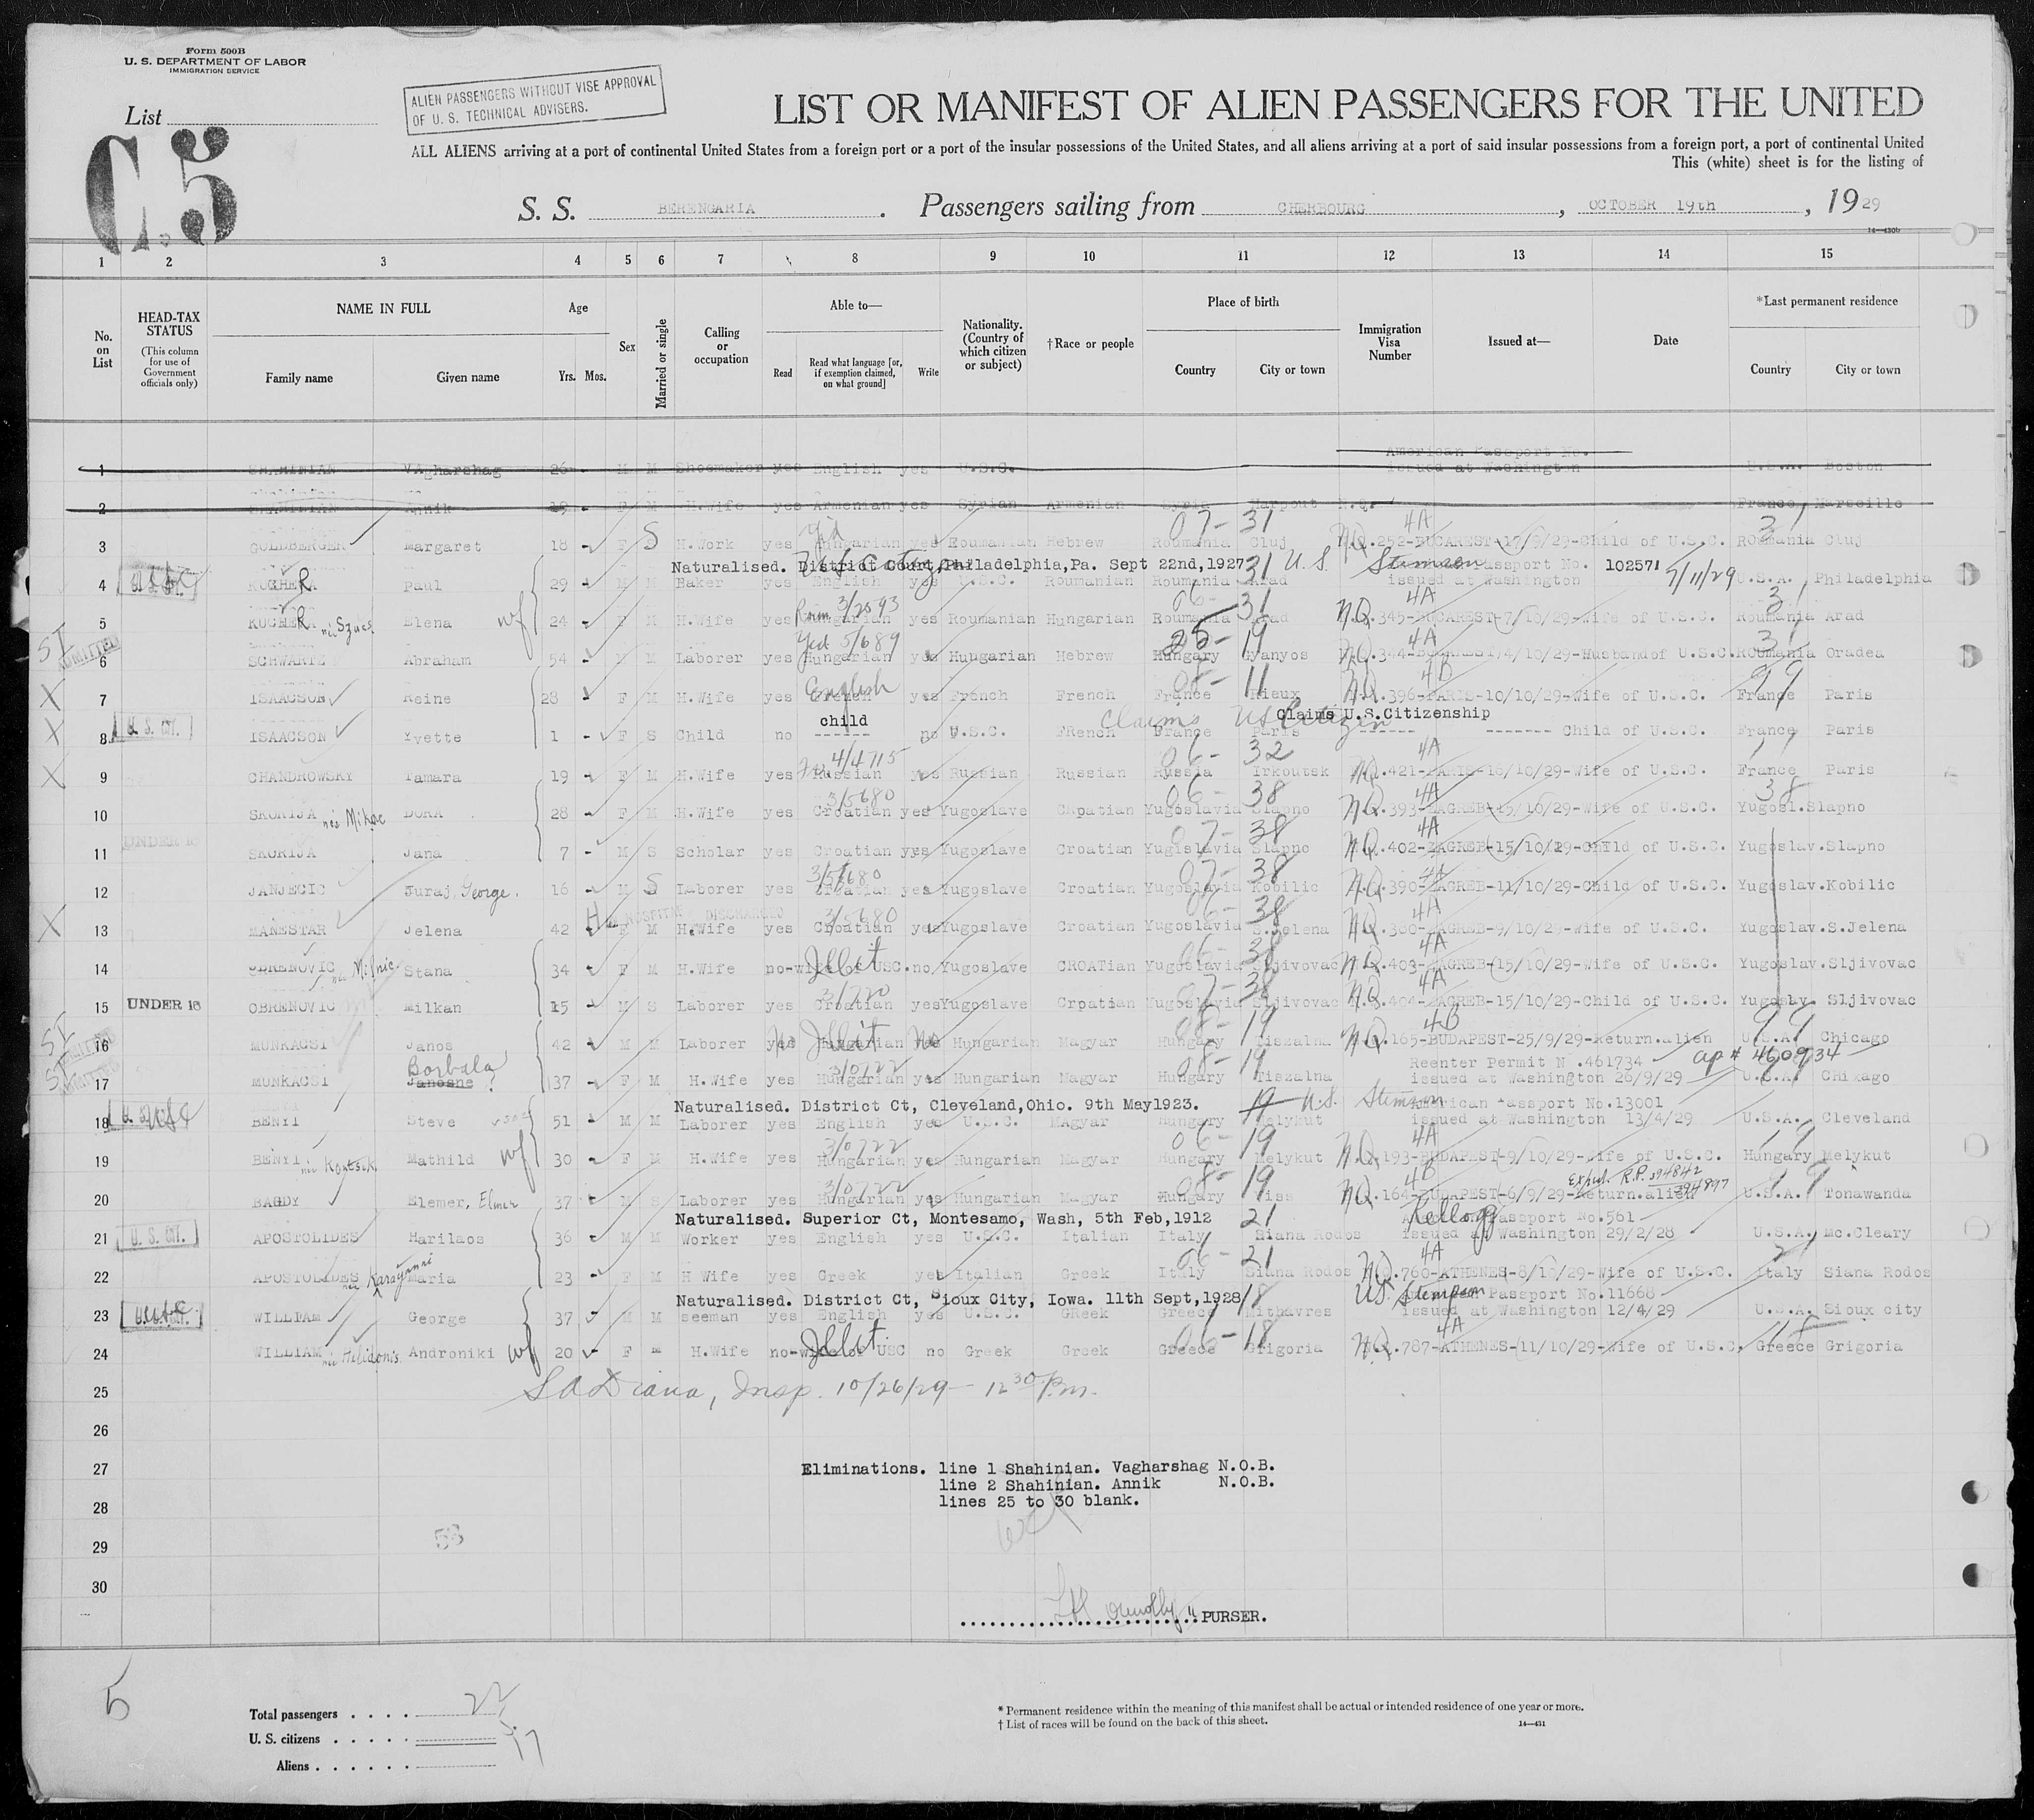 Form 500B
U. S. DEPARTMENT OF LABOR
IMMIGRATION SERVICE
List
C.5
ALIEN PASSENGERS WITHOUT VISE APPROVAL
OF U. S. TECHNICAL ADVISERS.
LIST OR MANIFEST OF ALIEN PASSENGERS FOR THE UNITED
ALL ALIENS arriving at a port of continental United States from a foreign port or a port of the insular possessions of the United States, and all aliens arriving at a port of said insular possessions from a foreign port, a port of continental United
This (white) sheet is for the listing of
S. S. BERENGARIA . Passengers sailing from CHERBOURG , OCTOBER 19th , 1929
14—430b
1 2 3 4 5 6 7 8 9 10 11 12 13 14 15
No. on List
HEAD-TAX STATUS
(This column for use of Government officials only)
NAME IN FULL
Family name Given name
Age
Yrs. Mos.
Sex
Married or single
Calling or occupation
Able to—
Read
Read what language [or, if exemption claimed, on what ground]
Write
Nationality. (Country of which citizen or subject)
†Race or people
Place of birth
Country City or town
Immigration Visa Number
Issued at—
Date
*Last permanent residence
Country City or town
American Passport No.
1 SHAHINIAN VAgharshag 26 M M Shoemaker yes English yes U.S.C. issued at Washington U.S.A. Boston
2 SHAHINIAN Annik 19 F M H.Wife yes Armenian yes Syrian Armenian Syria Harpout N.Q. France Marseille
07- 31 4A 31
3 GOLDBERGER Margaret 18 F S H.Work yes Hungarian yes Roumanian Hebrew Roumania Cluj N.Q.252-BUCAREST-17/9/29-Child of U.S.C. ROumania Cluj
Naturalised. District Court,Philadelphia,Pa. Sept 22nd,1927 31 U.S. Stimson Passport No. 102571
4 KUCHERA R Paul 29 M M Baker yes English yes U.S.C. Roumanian Roumania Arad issued at Washington 7/11/29 U.S.A. Philadelphia
06- 31 4A 31
5 KUCHERA R née Szücs Elena wf 24 F M H.Wife yes Hungarian yes Roumanian Hungarian Roumania Arad N.Q.345-BUCAREST-7/10/29-Wife of U.S.C. Roumania Arad
SI ADMITTED Yid 5/689 25- 19 4A 31
6 SCHWARTZ Abraham 54 M M Laborer yes Hungarian yes Hungarian Hebrew Hungary Gyanyos N.Q.344-BUCAREST-4/10/29-Husbandof U.S.C.ROumania Oradea
English 08- 11 4B 99
7 ISAACSON Reine 28 F M H.Wife yes French yes French French France Rieux N.Q.396-PARIS-10/10/29-Wife of U.S.C. France Paris
child Claims US Citizen Claims U.S.Citizenship
8 U. S. CIT. ISAACSON Yvette 1 - F S Child no ------ no U.S.C. FRench France Paris ------ ------- Child of U.S.C. France Paris
4/4715 06- 32 4A
9 CHANDROWSKY Tamara 19 F M H.Wife yes Russian yes Russian Russian Russia Irkoutsk N.Q.421-PARIS-16/10/29-Wife of U.S.C. France Paris
3/5680 06- 38 4A 38
10 SKORIJA DORA 28 F M H.Wife yes Croatian yes Yugoslave Croatian Yugoslavia Slapno N.Q.393-ZAGREB-15/10/29-Wife of U.S.C. Yugosl.Slapno
UNDER 16 07- 38 4A
11 SKORIJA Jana 7 - M S Scholar yes Croatian yes Yugoslave Croatian Yugislavia Slapno N.Q.402-ZAGREB-15/10/29-CHIld of U.S.C. Yugoslav.Slapno
3/5680 07- 38 4A
12 JANJECIC Juraj George. 16 M S Laborer yes Croatian yes Yugoslave Croatian Yugoslavia Kobilic N.Q.390-ZAGREB-11/10/29-Child of U.S.C. Yugoslav.Kobilic
HOSPITAL DISCHARGED 3/5680 06- 38 4A
13 MANESTAR Jelena 42 F M H.Wife yes Croatian yes Yugoslave Croatian Yugoslavia S.Jelena N.Q.380-ZAGREB-9/10/29-Wife of U.S.C. Yugoslav.S.Jelena
Illit 06- 38 4A
14 OBRENOVIC Stana 34 F M H.Wife no-wife of USC.no Yugoslave CROATian Yugoslavia Sljivovac N.Q.403-ZAGREB-15/10/29-Wife of U.S.C. Yugoslav.Sljivovac
07- 38 4A
15 UNDER 16 OBRENOVIC Milkan 15 M S Laborer yes Croatian yes Yugoslave Croatian Yugoslavia Sljivovac N.Q.404-ZAGREB-15/10/29-Child of U.S.C. Yugoslv. Sljivovac
SI Illit 08- 19 4B 99
16 MUNKACSI Janos 42 M M Laborer yes No Hungarian yes No Hungarian Magyar Hungary Tiszalna N.Q.165-BUDAPEST-25/9/29-Return.alien U.S.A. Chicago
SI Borbala 3/0722 08- 19 Reenter Permit N .461734 ap# 460934
17 MUNKACSI Janosne 37 F M H.Wife yes Hungarian yes Hungarian Magyar Hungary Tiszalna issued at Washington 26/9/29 U.S.A. Chixago
Naturalised. District Ct, Cleveland,Ohio. 9th May1923. 19 U.S. Stimson American Passport No.13001
18 BENYI Steve 51 M M Laborer yes English yes U.S.C. MAgyar Hungary Melykut issued at Washington 13/4/29 U.S.A. Cleveland
3/0722 06- 19 4A 19
19 BENYI Mathild wf 30 F M H.Wife yes Hungarian yes Hungarian Magyar Hungary Melykut N.Q.193-BUDAPEST-9/10/29-Wife of U.S.C. Hungary Melykut
3/0722 08- 19 4B Expd. R.P. 394842
20 BARDY Elemer, Elmer 37 M S Laborer yes Hungarian yes Hungarian Magyar Hungary Tiss N.Q.164-BUDAPEST-6/9/29-Return.alien U.S.A. Tonawanda
Naturalised. Superior Ct, Montesamo, Wash, 5th Feb,1912 21 Kellogg Passport No.561
21 U. S. CIT. APOSTOLIDES Harilaos 36 M M Worker yes English yes U.S.C. Italian Italy Siana Rodos issued at Washington 29/2/28 U.S.A. Mc.Cleary
06- 21 4A 21
22 APOSTOLIDES née Karayanni Maria 23 F M H Wife yes Greek yes Italian Greek Italy Siana Rodos N.Q.760-ATHENES-8/10/29-Wife of U.S.C. Italy Siana Rodos
Naturalised. District Ct, Sioux City, Iowa. 11th Sept,1928 18 US. Stimson Passport No.11668
23 WILLIAM George 37 M M seeman yes English yes U.S.C. GReek Greece Mithavres issued at Washington 12/4/29 U.S.A. Sioux city
Illit. 06- 18 4A 18
24 WILLIAM née Helidonis. Androniki wf 20 F M H.Wife no-wife of USC no Greek Greek Greece Grigoria N.Q.787-ATHENES-11/10/29-Wife of U.S.C. Greece Grigoria
25 S A Diana, Insp. 10/26/29 — 12 30 P.m.
26
27 Eliminations. line 1 Shahinian. Vagharshag N.O.B.
line 2 Shahinian. Annik N.O.B.
28 lines 25 to 30 blank.
53
29
30
PURSER.
5
Total passengers . . . . 22
U. S. citizens . . . . . 5
Aliens . . . . . . 17
* Permanent residence within the meaning of this manifest shall be actual or intended residence of one year or more.
† List of races will be found on the back of this sheet.
14—431